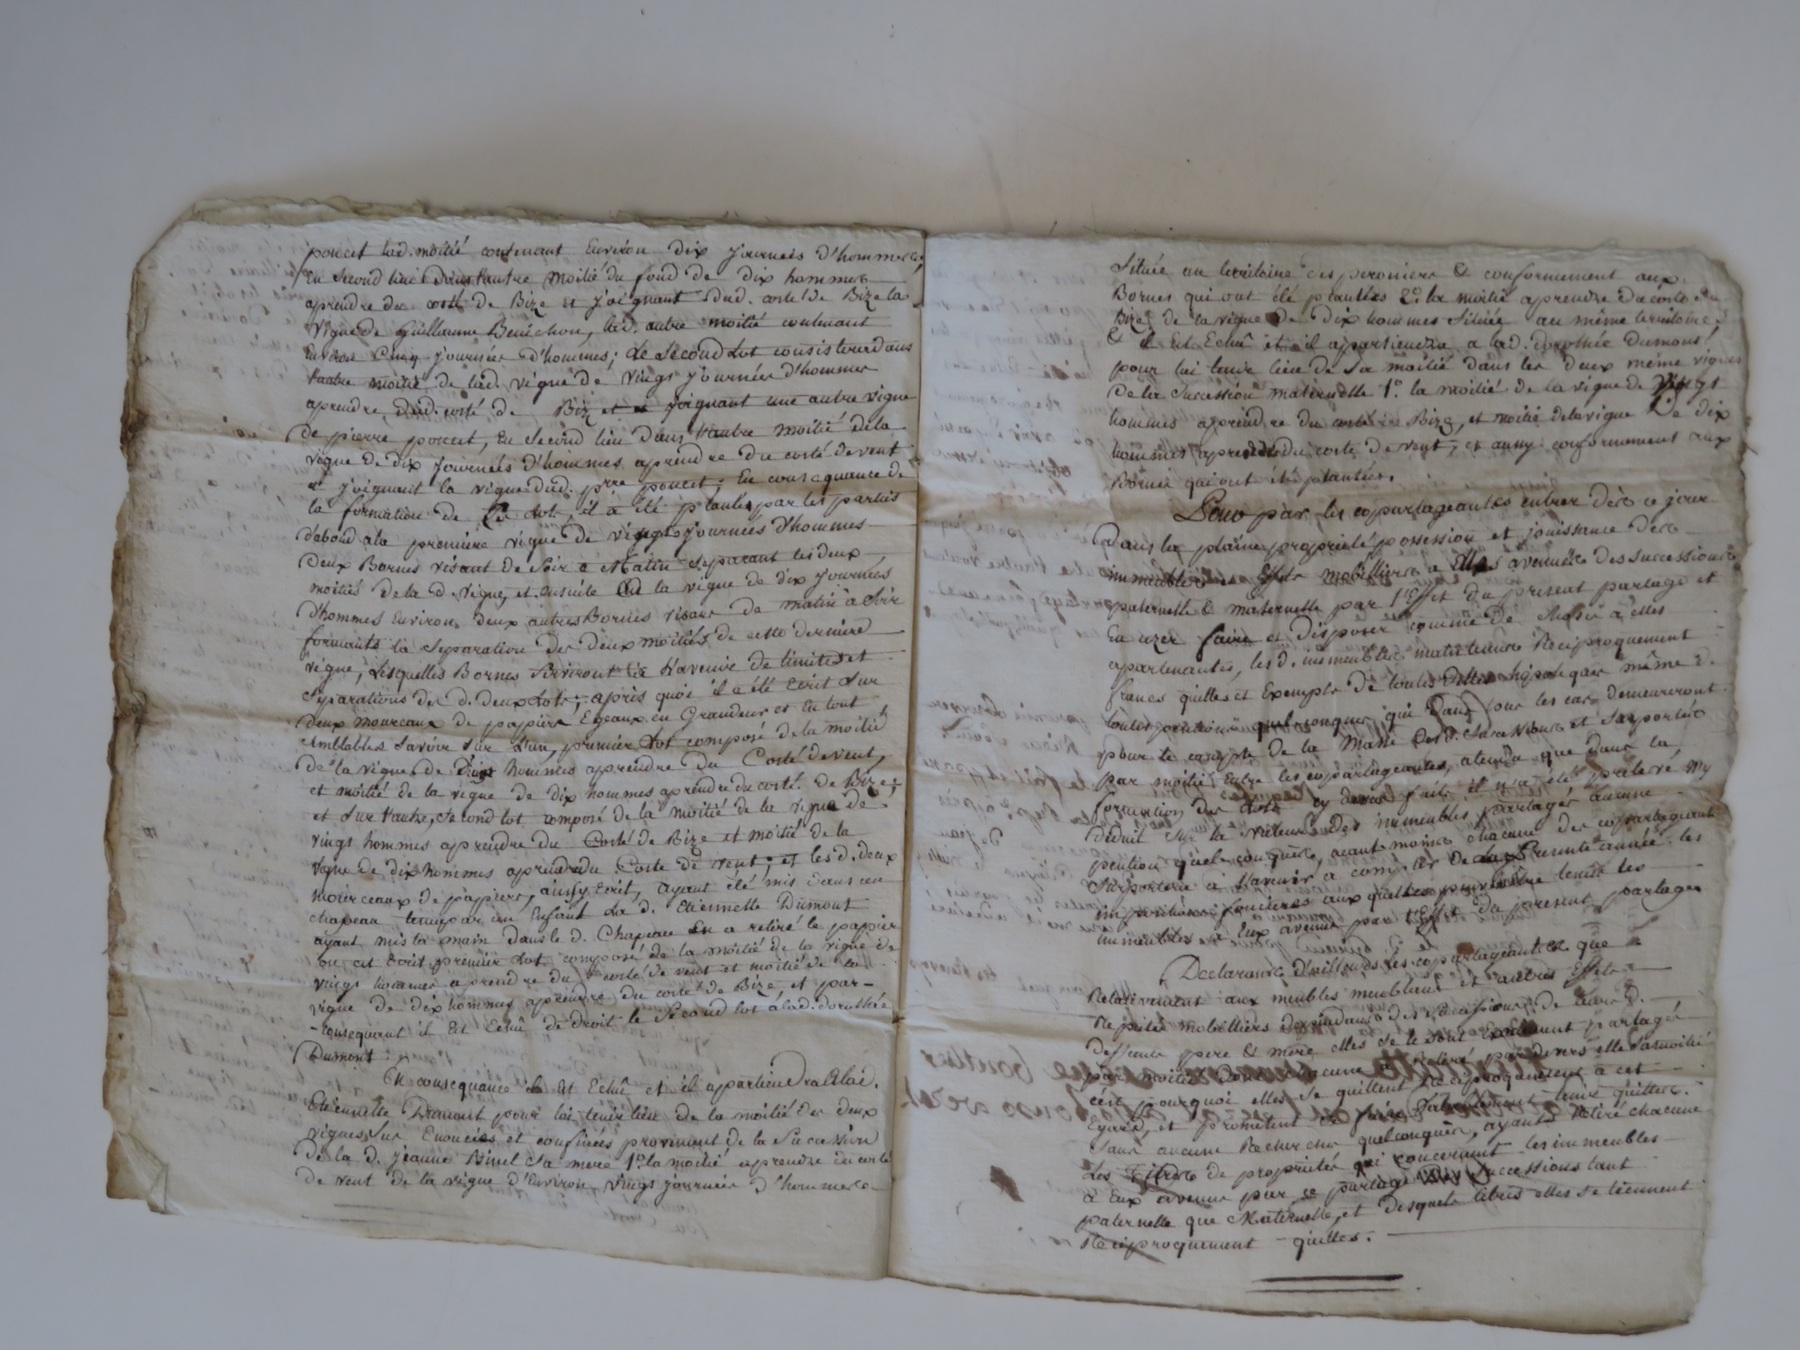 poncet lad. moitié contenant Environ dix journeés d'hommes,
en second lieu Dans l'autre moitié du fond de dix hommes
aprendre du costé de Bize et joignant dud. costé de Bize la
vigne de Guillaume Benichon, lad. autre moitié contenant
Environ Cinq journées d'hommes; Le Second Lot consistera dans
l'autre moitié de lad. vigne de vings journées d'hommes
aprendre dud. costé de Bize et joignant une autre vigne
de pierre poncet, en second lieu dans l'autre moitié de la
vigne de dix journeés d'hommes aprendre du costé de vent
et joignant la vigne dud. prre poncet; En consequance de
la formation de Ces Lots, il a été plantés par les parties
d'abord a la première vigne de vings journées d'hommes
deux Bornes visant de Soir a Matin separant les deux
moitiés de la d. vigne, et ensuite En la vigne de dix journeés
d'hommes Environ deux autres Bornes visant de matin a Soir
formants la Separation des deux moitiés de cette derniere
vigne, Lesquelles Bornes Serviront a l'avenir de limites et
Separations des d. deux Lots; après quoi il a été Ecrit sur
deux mourceaux de papiers Egeaux en Grandeur et en tout
semblables Savoir Sur L'un, premier Lot composé de la moitié
de la vigne de vings hommes aprendre du Costé de vent,
et moitié de la vigne de dix hommes aprendre du costé de Bize;
et Sur l'autre, Second lot composé de la moitié de la vigne de
vings hommes aprendre du Costé de Bize et moitié de la
vigne de dix hommes aprendre du Costé de vent; et les d. deux
mourceaux de papiers, ainsy Ecrit, ayant été mis dans un
chapeau tenu par un Enfant La d. Etiennette Dumont
ayant mis la main dans le d. Chapeau En a retiré le papier
ou est Ecrit premier Lot composé de la moitié de la vigne de
vings hommes aprendre du costé de vent et moitié de la
vigne de dix hommes aprendre du costé de Bize, et par-
-consequant il Est Echû de droit le Second lot à lad. dorothée
Dumont.
En consequance il Est Echû et il apartiendra a lad.
Etiennette Dumont pour lui tenir lieu de la moitié des deux
vignes Sus Enoncées et confinées provenant de la Succession
de la d. jeanne Binel Sa mere 1.o la moitié aprendre du costé
de vent de la vigne d'Environ vings journées d'hommes
Située au territoire des peroniers & conformement aux
Bornes qui ont été plantées 2.o la moitié aprendre du costé de
Bize de la vigne de dix hommes Située au même territoire,
& il Est Echû et il apartiendra a lad. dorothée Dumont
pour lui tenir lieu de Sa moitié dans les deux même vignes
De la Succession maternelle 1.o la moitié de la vigne de vings
hommes aprendre du costé de Bize, et moitié de la vigne de dix
hommes aprendre du costé de vent; et aussy conformement aux
Bornes qui ont été plantées.
Pour par les copartageantes entrer dès ce jour
Dans la plaine proprieté possession et jouissance des
immeubles et Effets mobilliers a Elles avenus des successions
paternelle & maternelle par l'effet du present partage et
En uzer faire et disposer comme de chose à elles
apartenantes, les d. immeubles maintenus Reciproquement
francs quittes et Exempts de toutes dettes hipotèques même de
toutes pentions quelconques qui dans tous les cas demeureront
pour le compte de la masse des d. Successions et Suportés
par moitié Entre les copartageantes, atendu que dans la
formation des Lots cy devant faits il n'a été prélevé ny
déduit Sur la valeur des immeubles partagés aucune
pention quelconque, neant moins chacune des copartageantes
Suportera à l'avenir a compter de la presente année les
impositions foncieres aux quelles pourront être tenus les
immeubles a Eux avenus par l'Effet du present partage
Declarants d'ailleurs les copartageantes que
Relativement aux meubles meublans et autres Effets
Reputés mobilliers dependans des Successions de leurs d.
deffunts pere & mere elles se le Sont Exactement partagés
par moitié dont chacune a retiré par devers elle Sa moitié
cest pourquoi elles Se quittent Reciproquement a cet
Egard, et prometent de S'en faire Valablement tenir quittes
Sans aucune Recherche quelconques, ayant Retiré chacune
Les Titres de proprietés qui concernent les immeubles
à Eux avenus par ce partage des Successions tant
paternelle que Maternelle, et desquels titres elles Se tiennent
Reciproquement quittes.